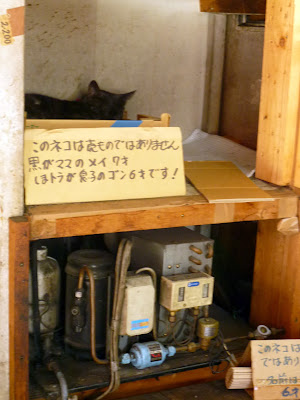 2,200
このネコは売ものではありません
黒がママのメイ 7才
しまトラが息子のゴン6才です!
このネコは
ではあり
6才